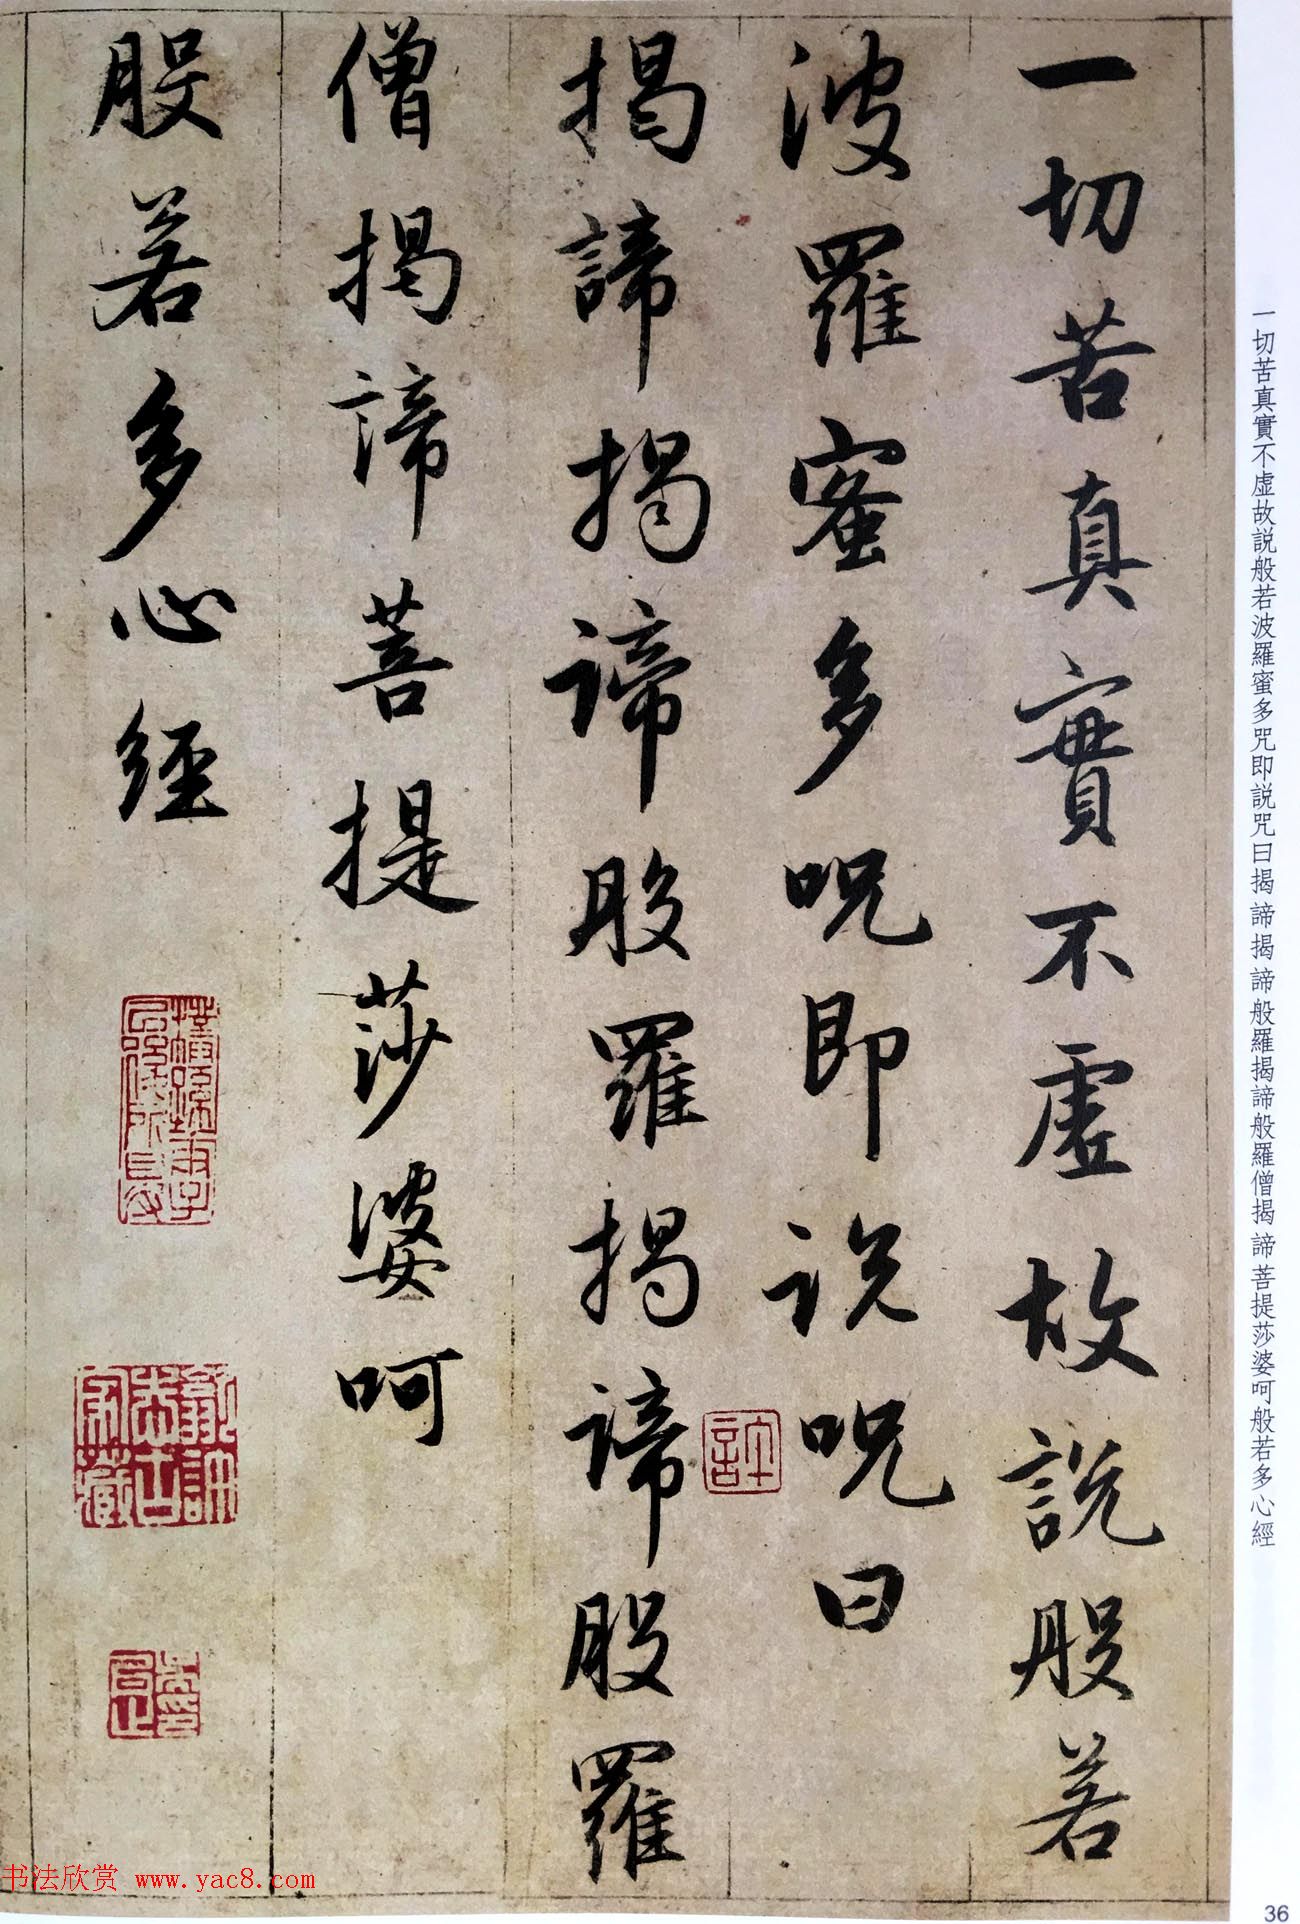 一切苦真實不虛故說般若
波羅蜜多咒即說咒曰
揭諦揭諦般羅揭諦般羅
僧揭諦菩提莎婆呵
般若多心經
一切苦真實不虛故説般若波羅蜜多咒即説咒曰揭諦揭諦般羅揭諦般羅僧揭諦菩提莎婆呵般若多心經
书法欣赏 www.yac8.com
36